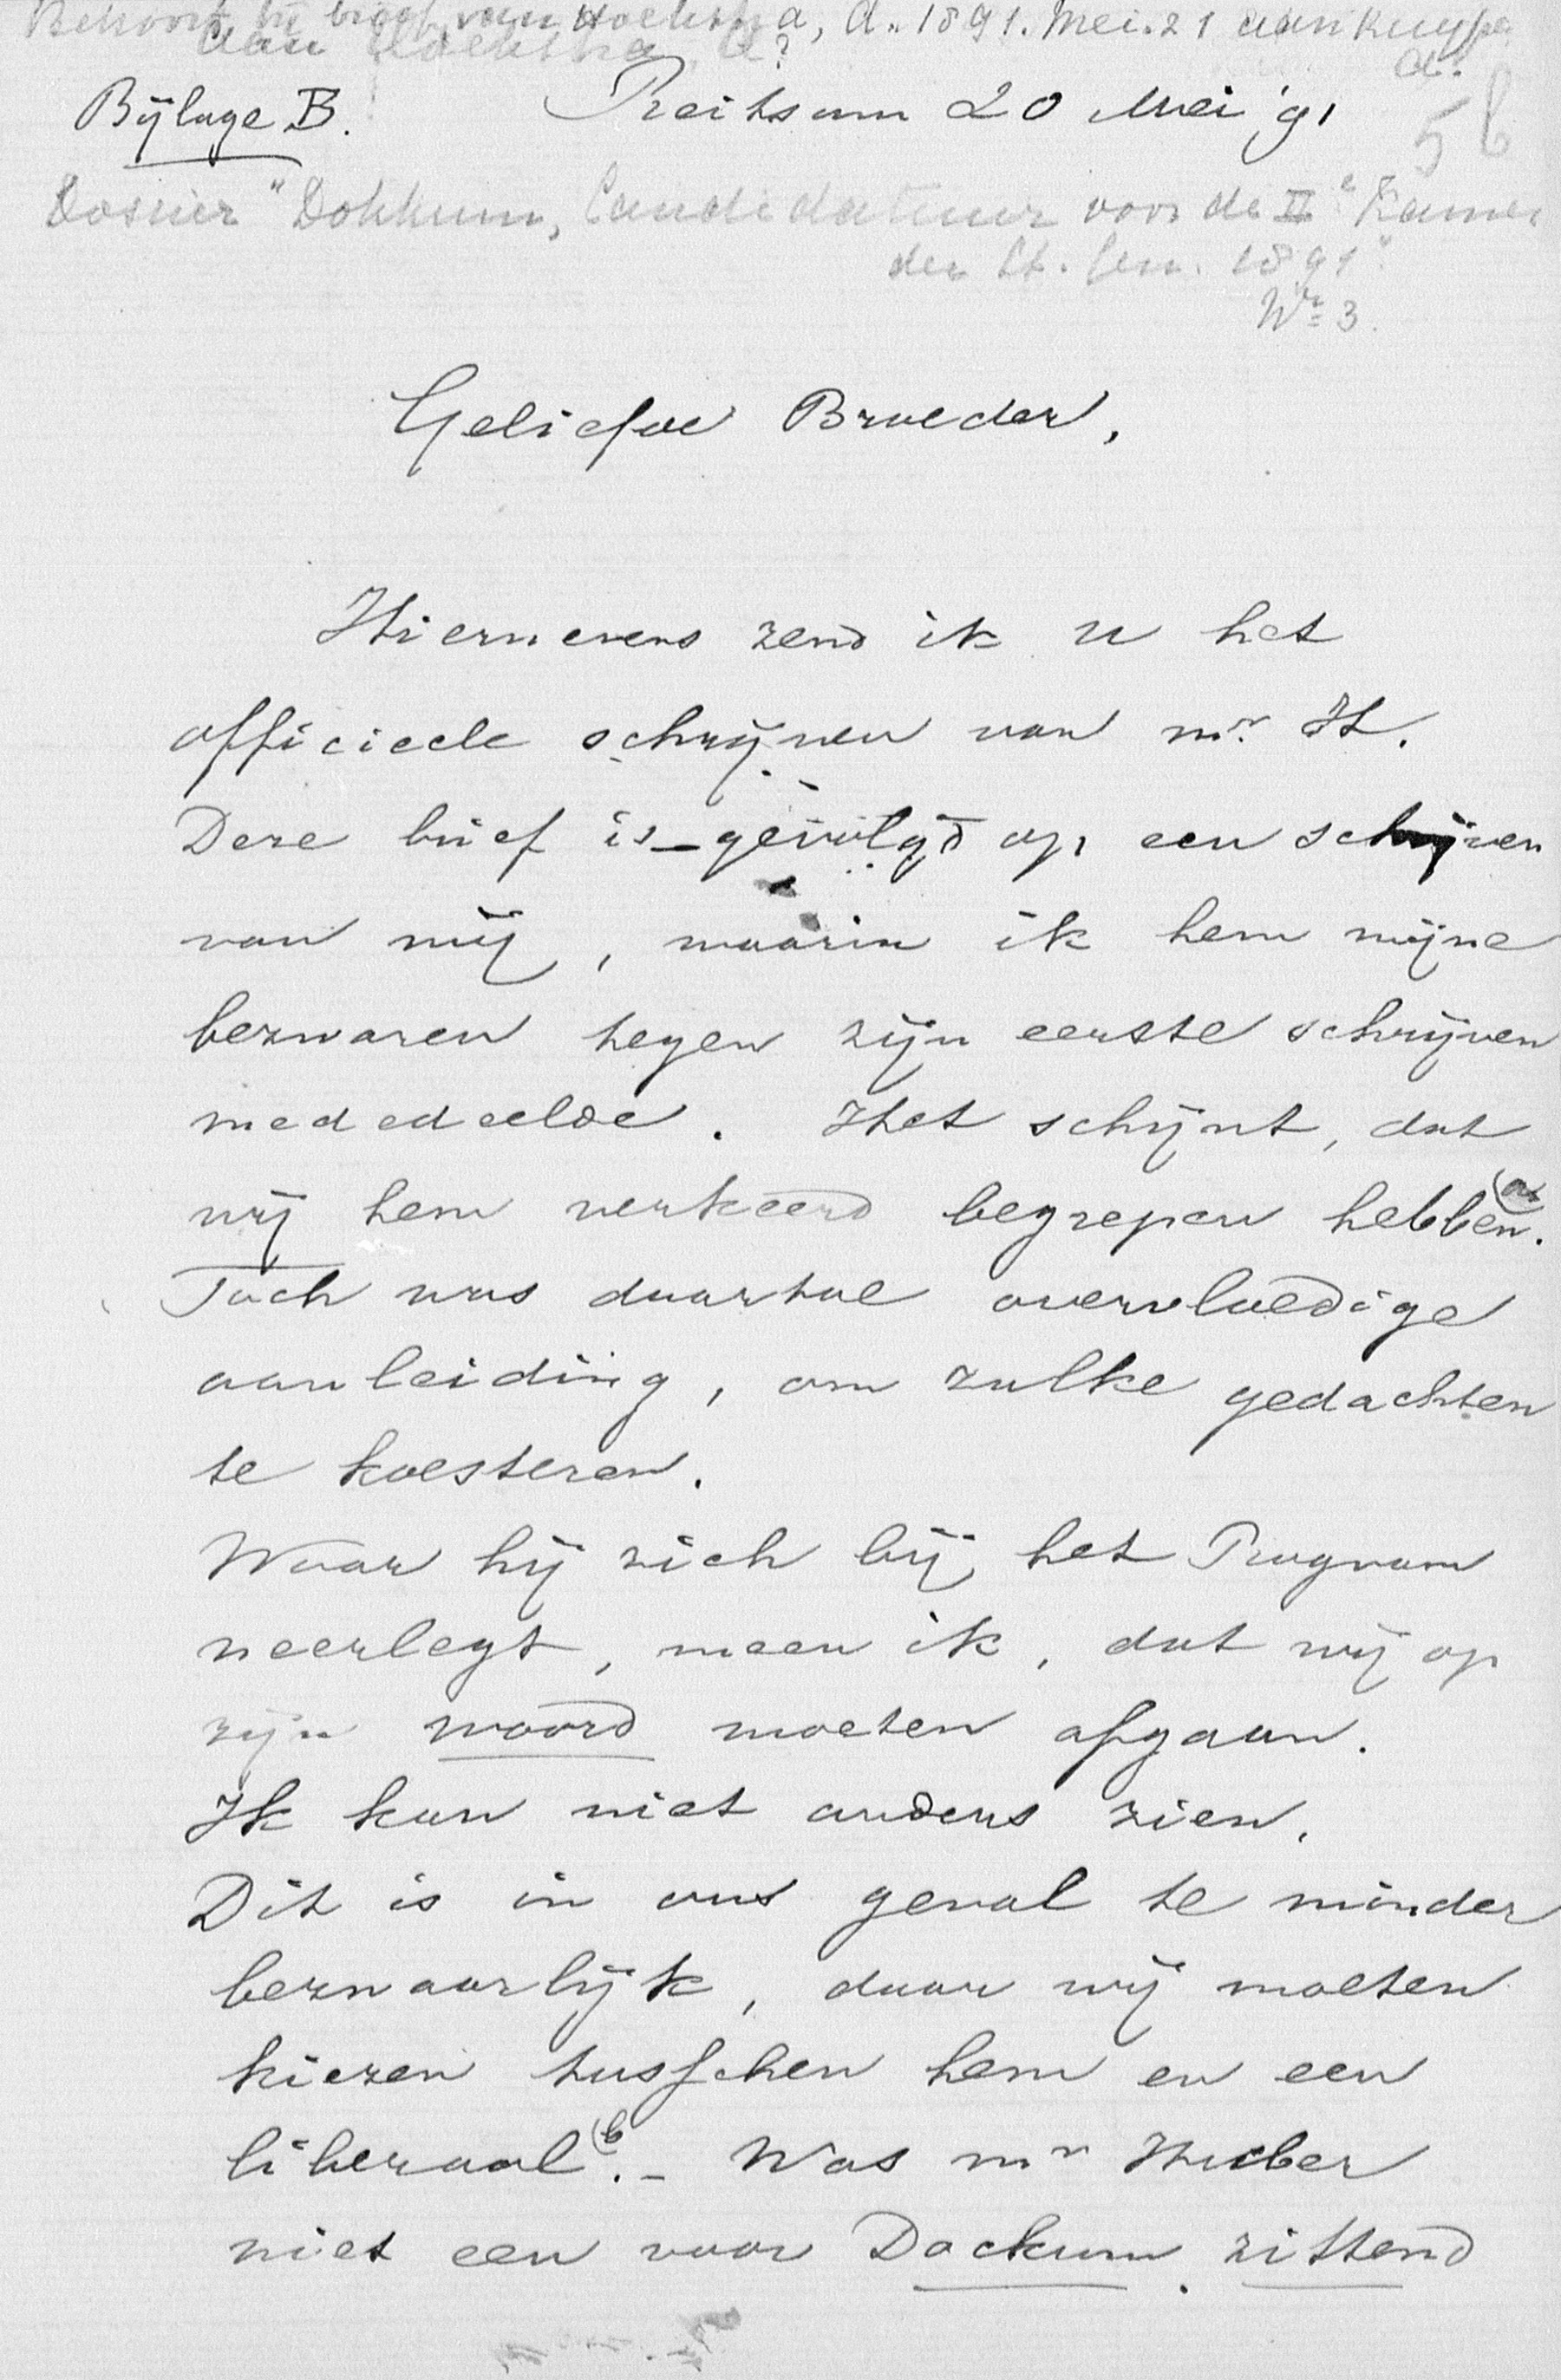 Behoort bij brief van Hoekstra, A. 1891. Mei. 21 aan Kuyper
aan Hoekstra, A?
A.
Bijlage B. Reitsum 20 Mei '91
5b
Dossier "Dokkum, Candidatuur voor de IIe Kamer
der St. Gen. 1891"
No 3.
Geliefde Broeder,
Hiernevens zend ik u het
officieele schrijven van mr. H.
Deze brief is gevolgd op een schrijven
van mij, waarin ik hem mijne
bezwaren tegen zijn eerste schrijven
mededeelde. Het schijnt, dat
wij hem verkeerd begrepen hebben (a.
Toch was daartoe overvloedige
aanleiding, om zulke gedachten
te koesteren.
Waar hij zich bij het Program
neerlegt, meen ik, dat wij op
zijn woord moeten afgaan.
Ik kan niet anders zien.
Dit is in ons geval te minder
bezwaarlijk, daar wij moeten
kiezen tusschen hem en een
liberaal (b. - Was mr Huber
niet een voor Dockum zittend